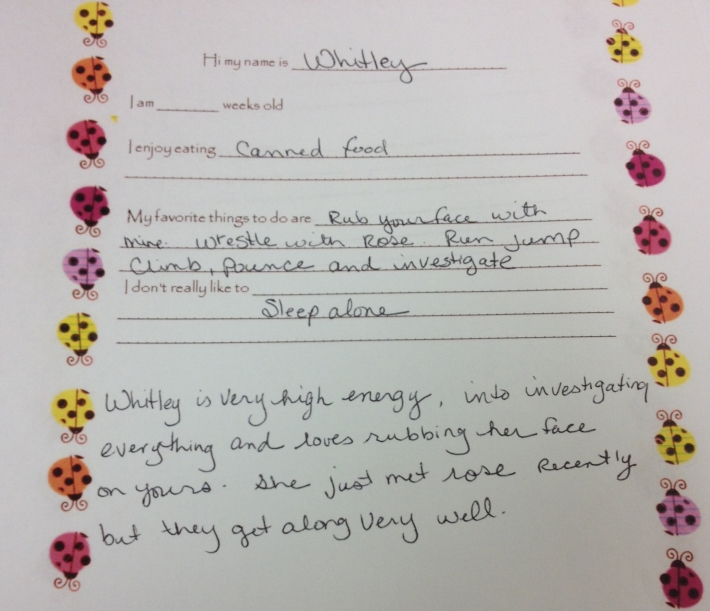 Hi my name is Whitley
I am ______ weeks old
I enjoy eating Canned food
My favorite things to do are Rub your face with
mine. Wrestle with Rose. Run Jump
Climb, Pounce and investigate
I don't really like to
Sleep alone
Whitley is very high energy, into investigating
everything and loves rubbing her face
on yours. She just met rose Recently
but they get along very well.